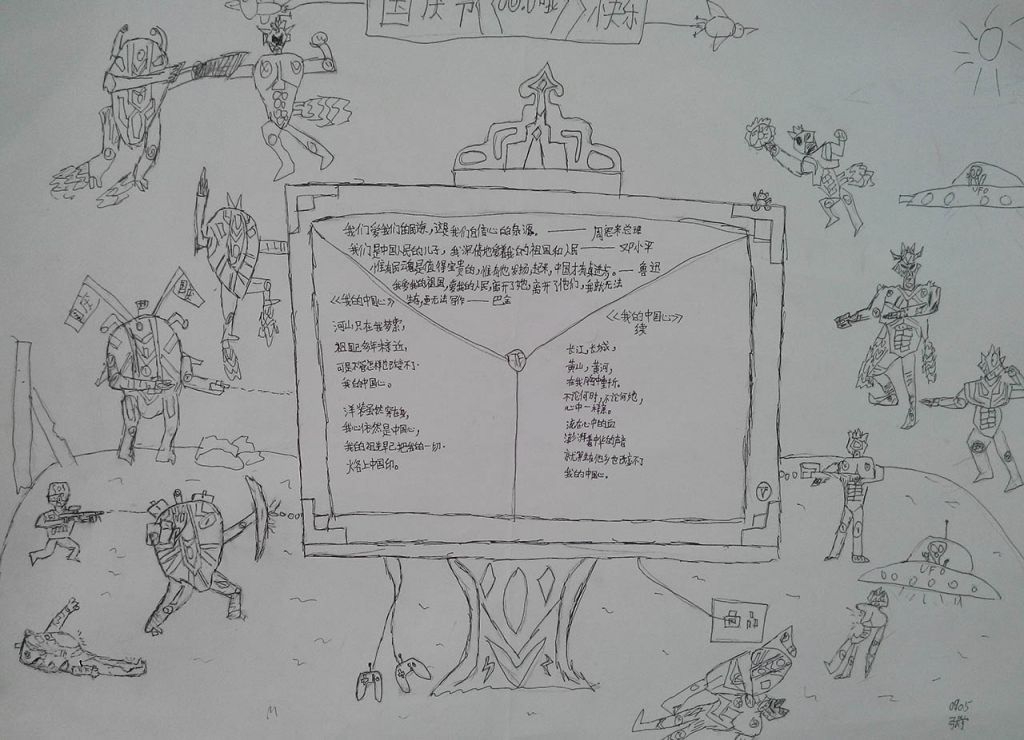 国庆节快乐
我们爱我们的民族，这是我们自信心的泉源。——周恩来总理
我们是中国人民的儿子，我深情地爱着我的祖国和人民——邓小平
惟有民魂是值得宝贵的，惟有他发扬起来，中国才有真进步。——鲁迅
我爱我的祖国，爱我的人民，离开了她，离开了他们，我就无法
生存，更无法写作——巴金
《我的中国心》
河山只在我梦萦，
祖国已多年未亲近，
可是不管怎样也改变不了
我的中国心。
洋装虽然穿在身，
我心依然是中国心，
我的祖先早已把我的一切
火烙上中国印。
《我的中国心》
续
长江，长城，
黄山，黄河，
在我胸中重千斤。
不论何时，不论何地，
心中一样亲。
流在心中的血
澎湃着中华的声音
就算生在他乡也改变不了
我的中国心。
国庆
UFO
UFO
0905